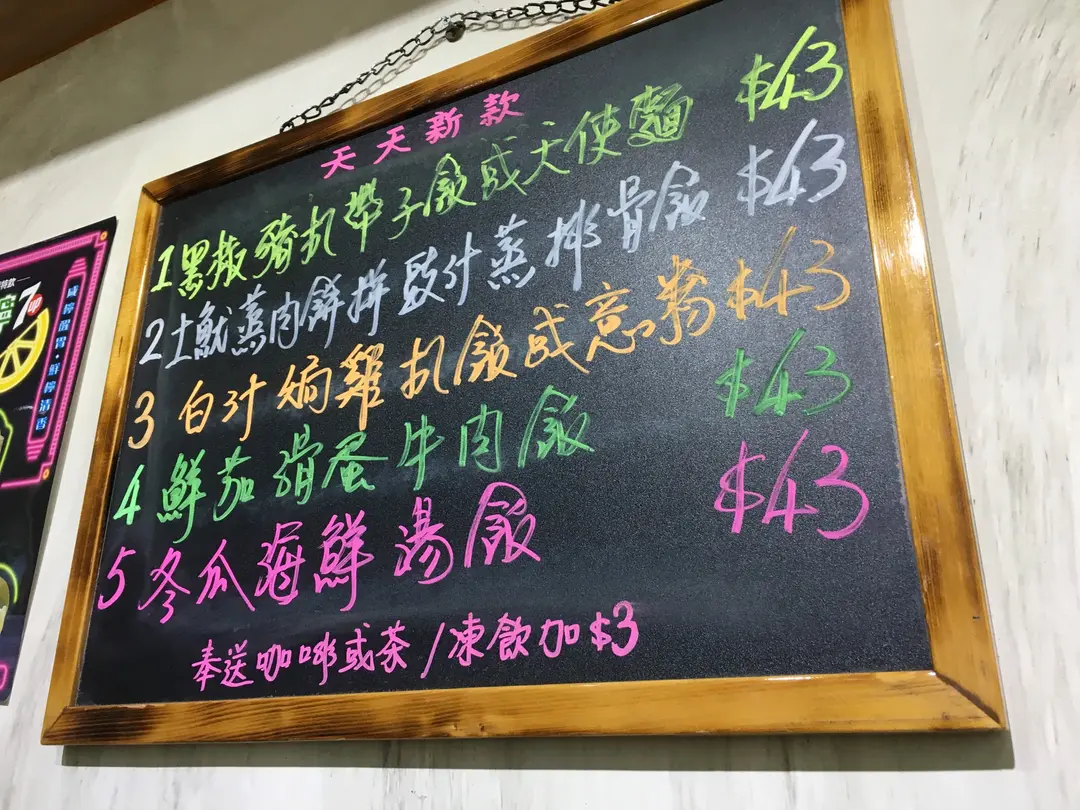 天天新款
1黑椒豬扒帶子飯或天使麵 $43
2土魷蒸肉餅拼豉汁蒸排骨飯 $43
3 白汁焗雞扒飯或意粉 $43
4 鮮茄滑蛋牛肉飯 $43
5 冬瓜海鮮湯飯 $43
奉送咖啡或茶/凍飲加$3
7
咸檸醒胃·鮮檸清香